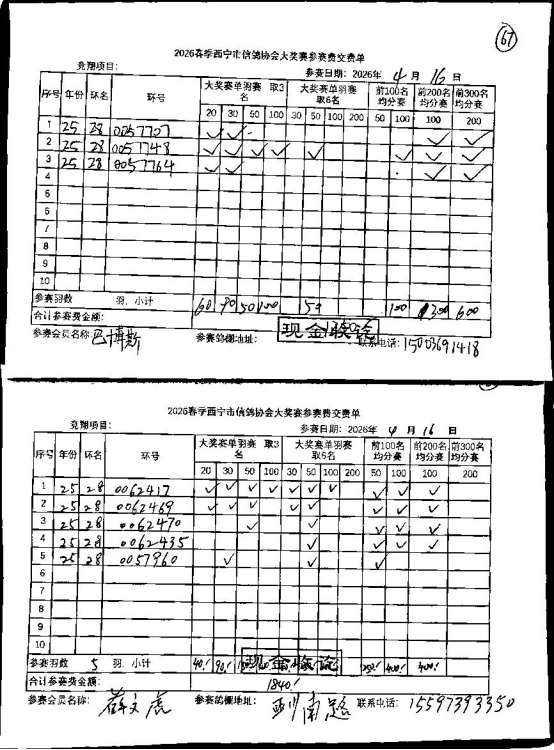 67
2026春季西宁市信鸽协会大奖赛参赛费交费单
竞翔项目: 参赛日期: 2026年 4 月 16 日
序号 年份 环名 环号 大奖赛单羽赛 取3名 大奖赛单羽赛 取6名 前100名均分赛 前200名均分赛 前300名均分赛
20 30 50 100 30 50 100 200 50 100 100 200
1 25 28 0057707 ✓ ✓ ✓ ✓
2 25 28 0057748 ✓ ✓ ✓ ✓ ✓ ✓ ✓ ✓
3 25 28 0057764 ✓ ✓ ✓ ✓
4
5
6
7
8
9
10
参赛羽数 羽. 小计 60 90 50 100 50 100 300 600
合计参赛费金额: 现金收讫
参赛会员名称: 巴博斯 参赛鸽棚地址: 联系电话: 15003691418
2026春季西宁市信鸽协会大奖赛参赛费交费单
竞翔项目: 参赛日期: 2026年 4 月 16 日
序号 年份 环名 环号 大奖赛单羽赛 取3名 大奖赛单羽赛 取6名 前100名均分赛 前200名均分赛 前300名均分赛
20 30 50 100 30 50 100 200 50 100 100 200
1 25 28 0062417 ✓ ✓ ✓ ✓ ✓ ✓ ✓ ✓ ✓ ✓
2 25 28 0062469 ✓ ✓ ✓ ✓ ✓ ✓ ✓ ✓
3 25 28 0062470 ✓ ✓ ✓ ✓ ✓
4 25 28 0062435 ✓ ✓ ✓ ✓
5 25 28 0057960 ✓ ✓ ✓
6
7
8
9
10
参赛羽数 5 羽. 小计 40 90 现金收讫 250 400 400
合计参赛费金额: 1840
参赛会员名称: 薛文虎 参赛鸽棚地址: 联系电话: 15597393350